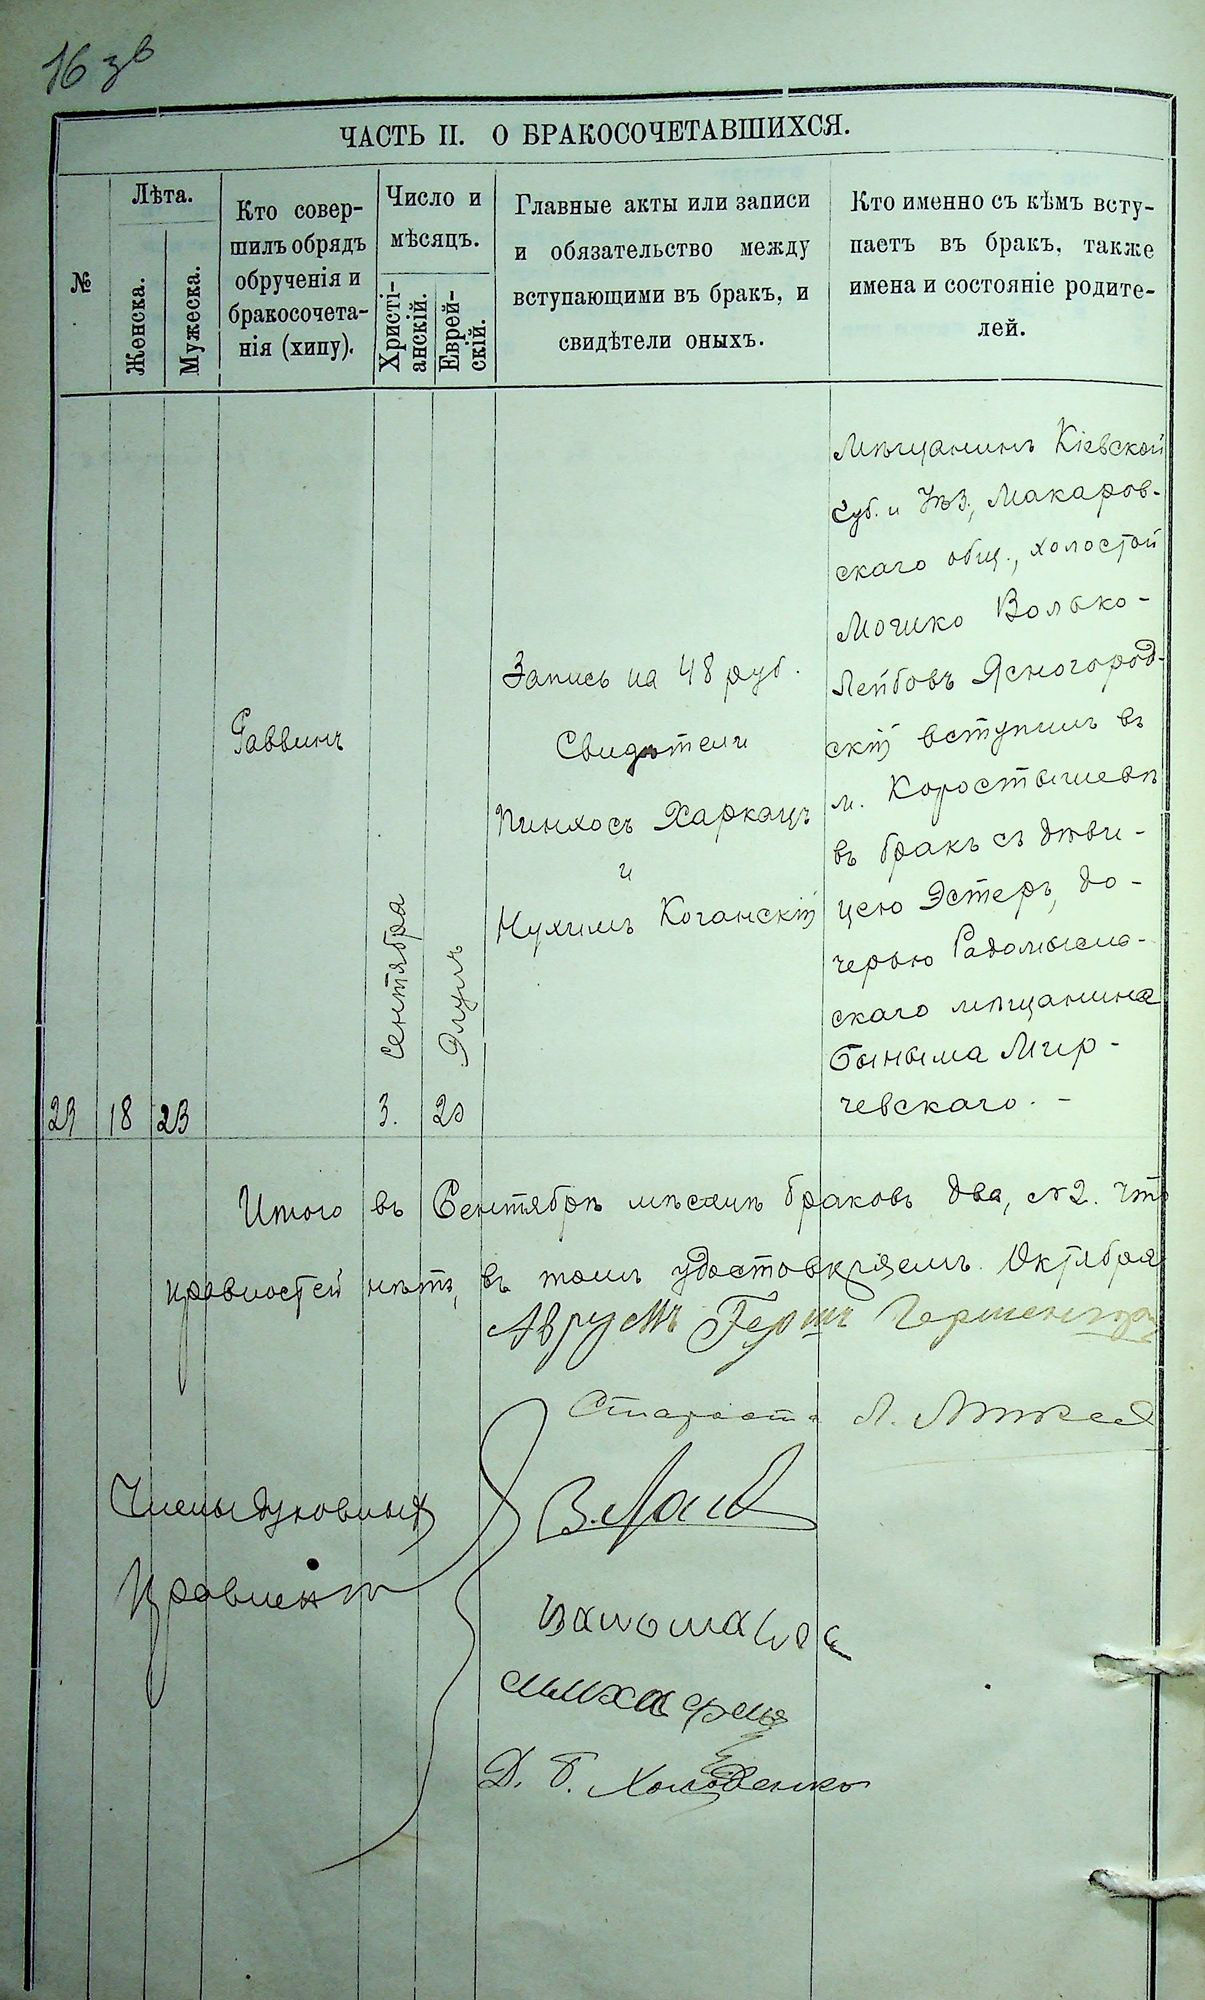 16 зв
ЧАСТЬ II. О БРАКОСОЧЕТАВШИХСЯ.
№
Лѣта.
Женска.
Мужеска.
Кто совер-
шилъ обрядъ
обрученія и
бракосочета-
нія (хипу).
Число и
мѣсяцъ.
Христі-
анскій.
Еврей-
скій.
Главные акты или записи
и обязательство между
вступающими въ бракъ, и
свидѣтели оныхъ.
Кто именно съ кѣмъ всту-
паетъ въ бракъ, также
имена и состояніе родите-
лей.
23
18
23
Раввинъ
Сентября
3.
Элулъ
20
Запись на 48 руб.
Свидѣтели
Пинхосъ Харкацъ
и
Нухимъ Коганскій
Мѣщанинъ Кіевской
Губ. и Уѣз., Макаров-
скаго общ., холостой
Мошко Волько-
Лейбовъ Ясногород-
скій вступилъ въ
м. Коростышевѣ
въ бракъ съ дѣви-
цею Эстеръ, до-
черью Радомысль-
скаго мѣщанина
Быныма Мир-
чевскаго. -
Итого въ Сентябрѣ мѣсяцѣ браковъ два, №2. Что
правностей нѣтъ, въ томъ удостовѣряемъ. Октября
Аврумъ Гершъ
Староста Л.
Члены духовнаго
Правленія
В.
Д. Б. Холоденко